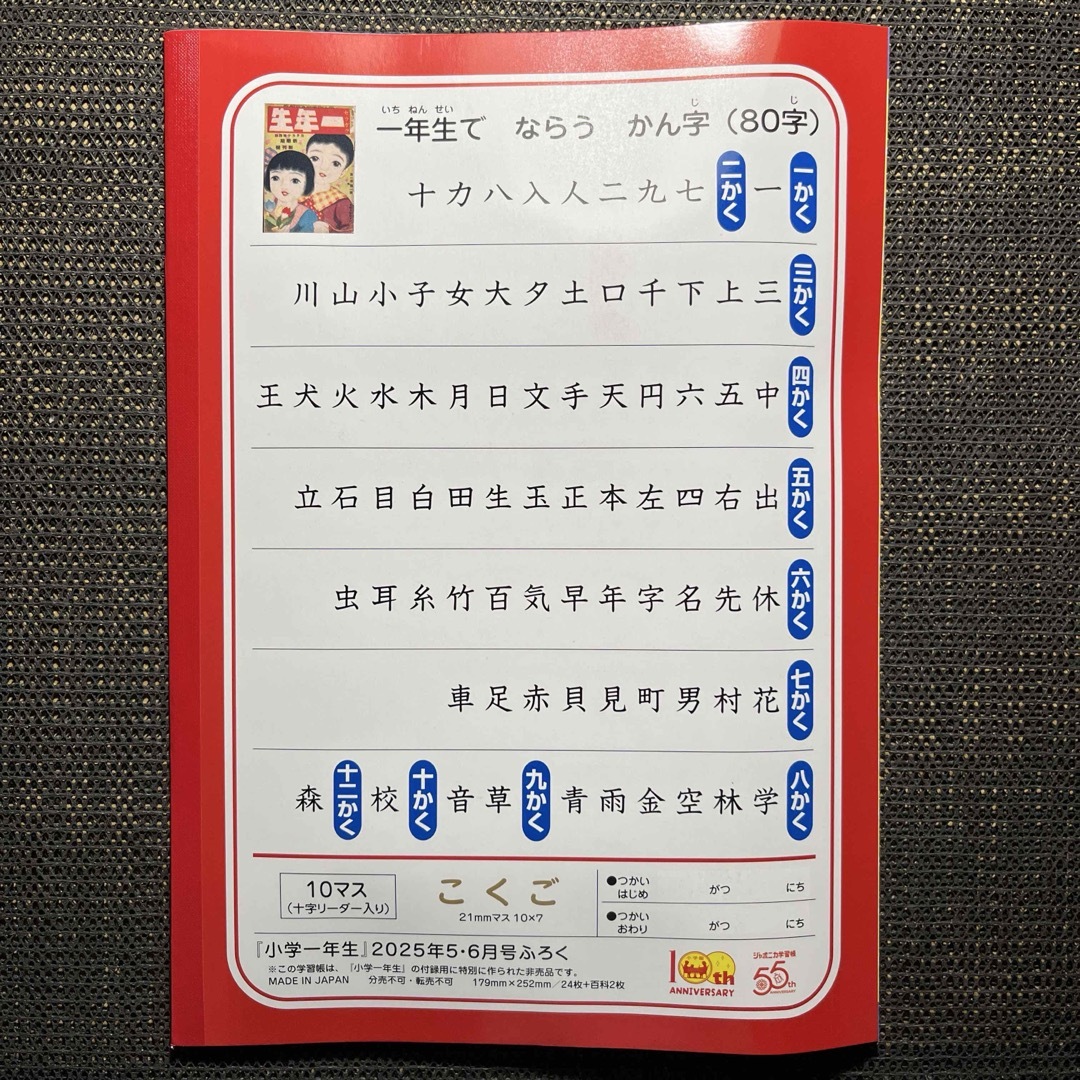 いち ねん せい
じ
じ
一年生で ならう かん字（80字）
一年生
一かく 一 二かく 七 九 二 人 入 八 力 十
三かく 三 上 下 千 口 土 夕 大 女 子 小 山 川
四かく 中 五 六 円 天 手 文 日 月 木 水 火 犬 王
五かく 出 右 四 左 本 正 玉 生 田 白 目 石 立
六かく 休 先 名 字 年 早 気 百 竹 糸 耳 虫
七かく 花 村 男 町 見 貝 赤 足 車
八かく 学 林 空 金 雨 青 九かく 草 音 十かく 校 十二かく 森
10マス
（十字リーダー入り）
こくご
21mmマス 10×7
●つかい はじめ がつ にち
●つかい おわり がつ にち
『小学一年生』2025年5・6月号ふろく
※この学習帳は、『小学一年生』の付録用に特別に作られた非売品です。
MADE IN JAPAN 分売不可・転売不可 179mm×252mm／24枚+百科2枚
100th
ANNIVERSARY
ジャポニカ学習帳
55th
ANNIVERSARY